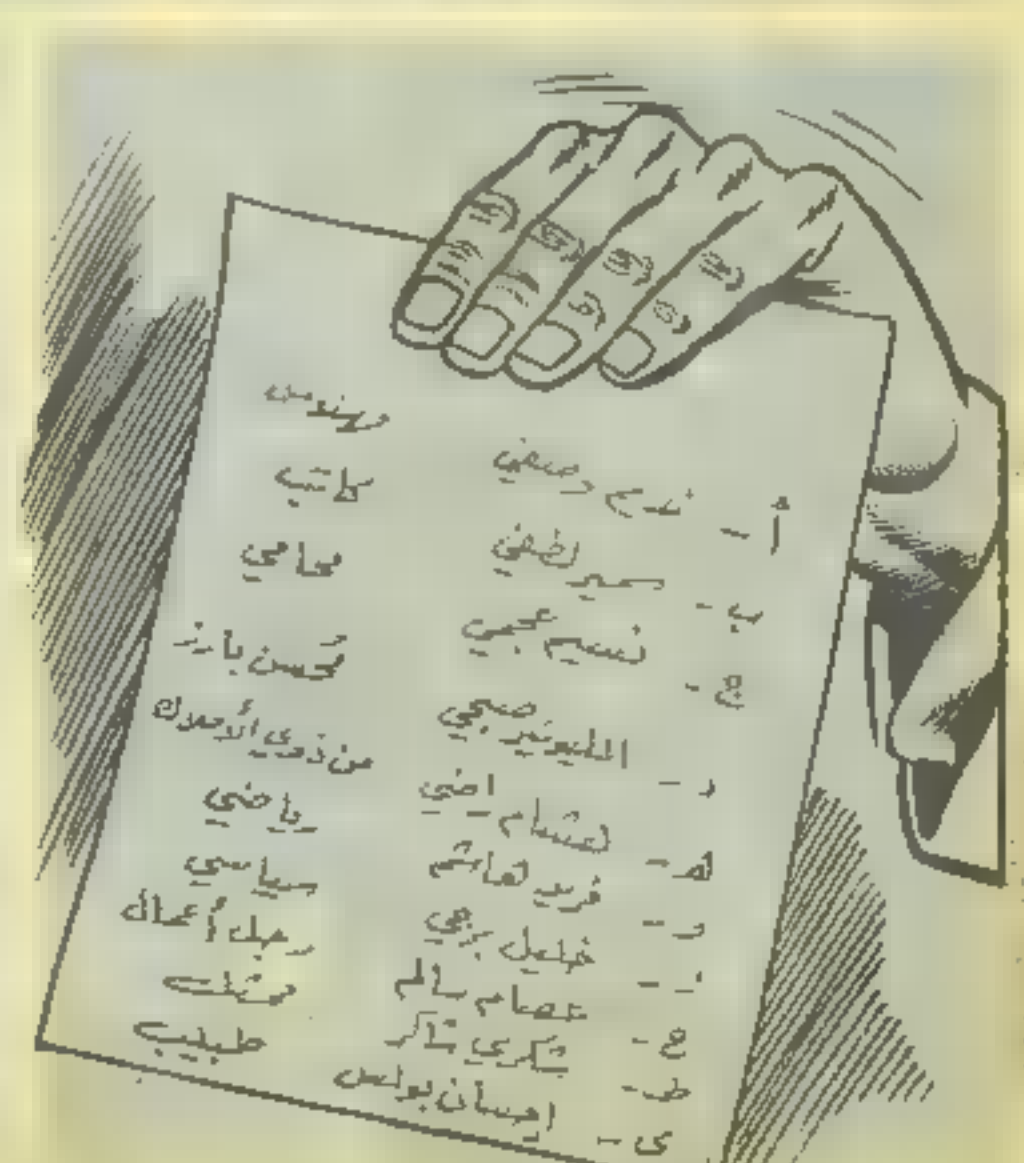 أ - نديم وصفي مهندس
ب - سمير لطفي كاتب
ج - نسيم عجمي محامي
د - المليونير صبحي مُحسن بارز
هـ - هشام اضي من ذوي الأملاك
و - فريد هاشم رياضي
ز - خليل برجي سياسي
ح - عصام سالم رجل أعمال
ط - شكري شاكر ممثل
ى - احسان بولس طبيب